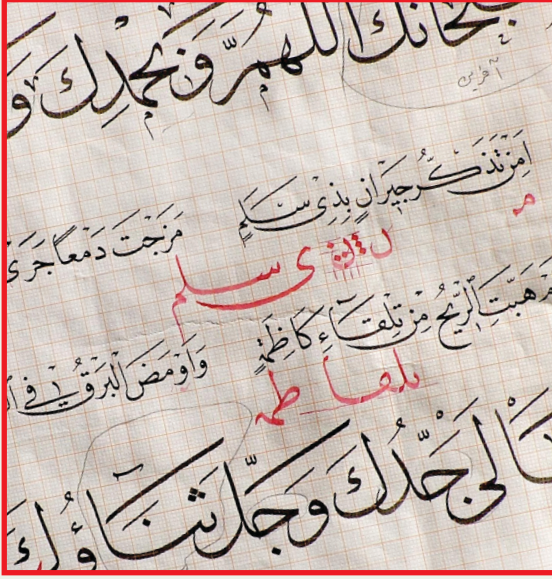 سبحانك اللهمّ وبحمدك و
آفرین
اَمِنْ تَذَكُّرِ جِيرَانٍ بِذِى سَلَمٍ مَزَجْتَ دَمْعاً جَرَى
ى سلم
هَبَّتِ الرِّيحُ مِنْ تِلْقَاءِ كَاظِمَةٍ وَاَوْمَضَ الْبَرْقُ فِى
تلقا ظمة
عَالى جَدُّكَ وَجَلَّ ثَنَاؤُكَ